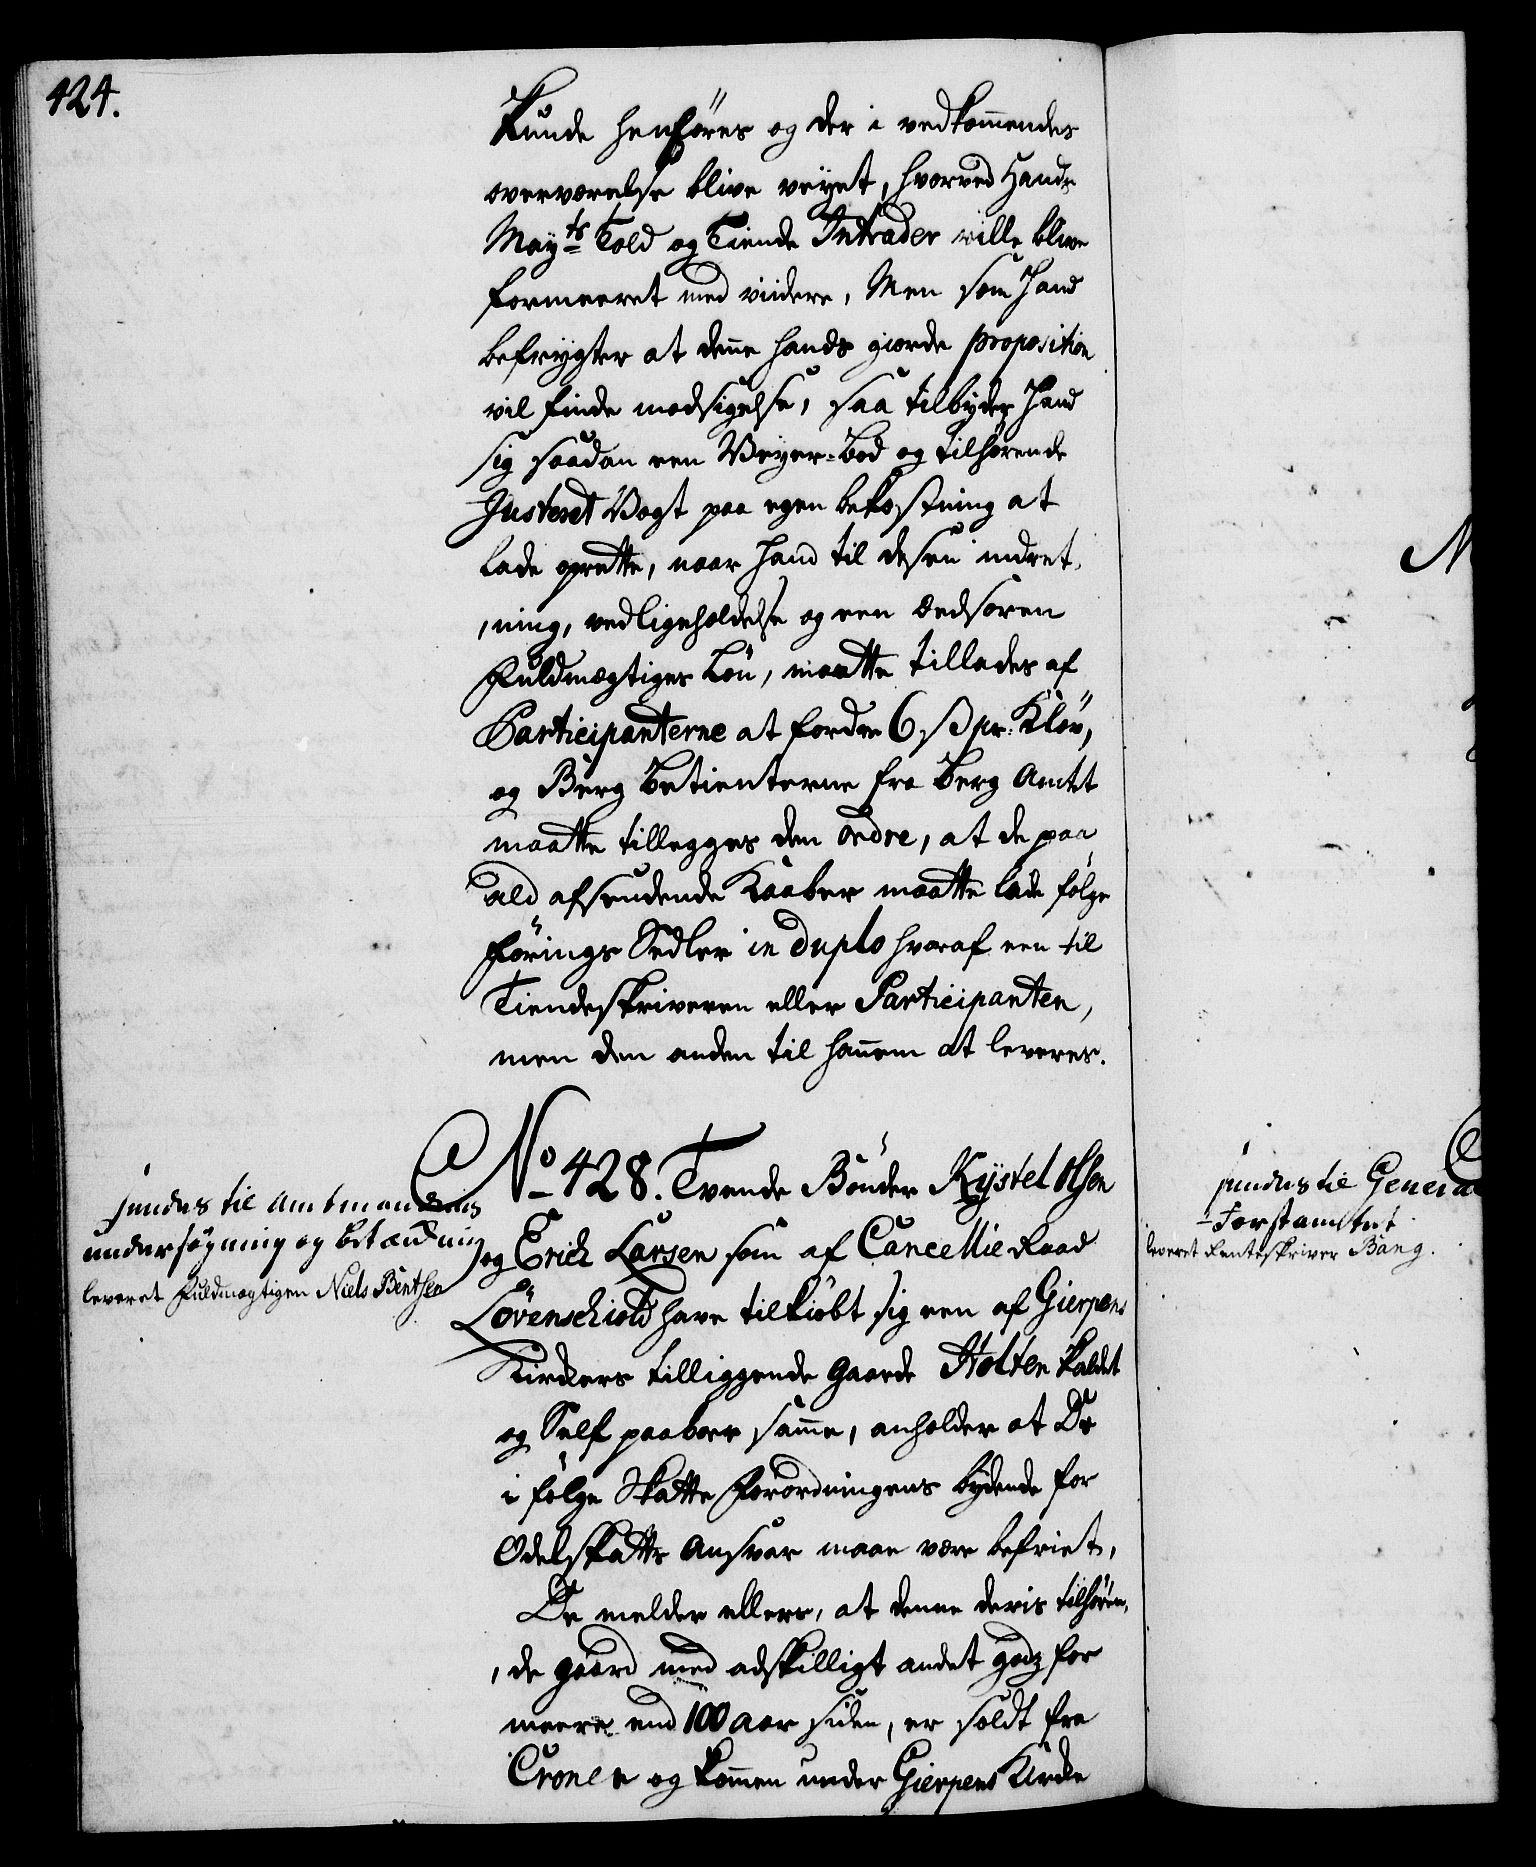 424.
kunde henföres og der i vedkommendes
overværelse blive veyet, hvorved Hands
Mayts Told og Tiende Intrader ville blive
formeeret med viidere, Men som Hand
befrygter at denne hands giorde proposition
vil finde modsigelse, saa tilbyder Hand
sig saadan een Veyer-Bod og tilhörende
Justeret Vegt paa egen bekostning at
lade oprette, naar Hand til dessen indret-
,ning, vedligeholdelse og een Eedsoren
Fuldmægtiges Lön, maatte tillades af
Participanterne at fordre 6 ß pr: Klöv,
og Berg Betienterne fra Berg Amtet
maatte tillegges den Ordre, at de paa
ald afsendende Kaaber maatte lade fölge
Förings Sedler in duplo hvoraf een til
Tiendeskriveren eller Participanten,
men den anden til hannem at leveres.
No 428. Tvende Bönder Kystel Olsen
og Erich Larsen som af Cancellie Raad
Lövenschiold have tilkiöbt sig een af Gierpens
Kirkers tilliggende Gaarde Holten kaldet
og Self paaboer samme, anholder at De
i fölge Skatte Forordningens bydende for
Odelskatts Ansvar maae være befriet,
De melder ellers, at denne deris tilhören-
,de gaard med adskilligt andet godz for
meere end 100 aar siden, er soldt fra
Cronen og kommen under Gierpens Kirke
sendes til Ambtmandens
undersögning og betænkning
leveret Fuldmægtigen Niels Bentsen
sendes til General
-Forstamtet
leveret Renteskriver Bang.